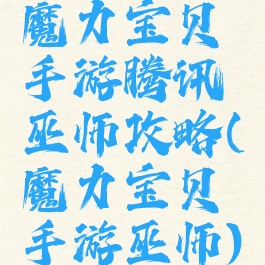 魔力宝贝
手游腾讯
巫师攻略(
魔力宝贝
手游巫师)